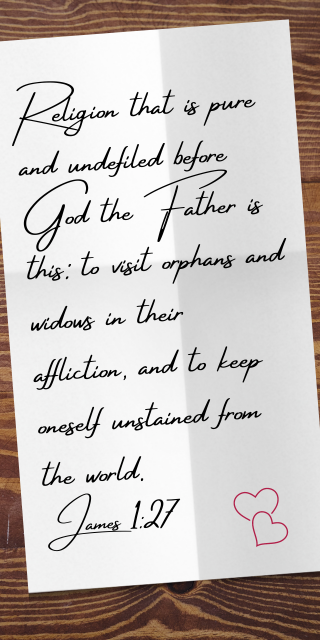 Religion that is pure
and undefiled before
God the Father is
this: to visit orphans and
widows in their
affliction, and to keep
oneself unstained from
the world.
James 1:27